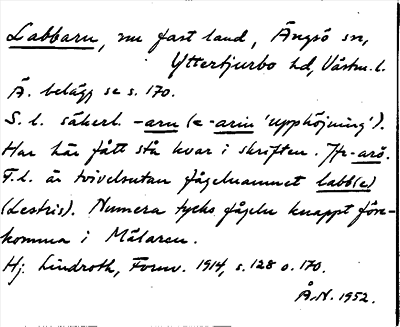 Labbarn, nu fast land, Ängsö sn,
Yttertjurbo hd, Västm. l.
Ä. belägg se s. 170.
S. l. säkerl. -arn (< -arin 'upphöjning').
Har här fått stå kvar i skriften. Jfr -arö.
F. l. är tvivelsutan fågelnamnet labb(e)
(Lestris). Numera tycks fågeln knappt före-
komma i Mälaren.
Hj. Lindroth, Fornv. 1914, s. 128 o. 170.
Å.N. 1952.